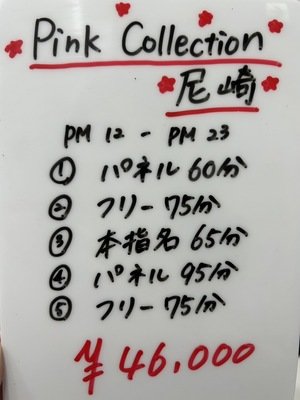 Pink Collection
尼崎
PM 12 - PM 23
① パネル 60分
② フリー 75分
③ 本指名 65分
④ パネル 95分
⑤ フリー 75分
¥ 46,000